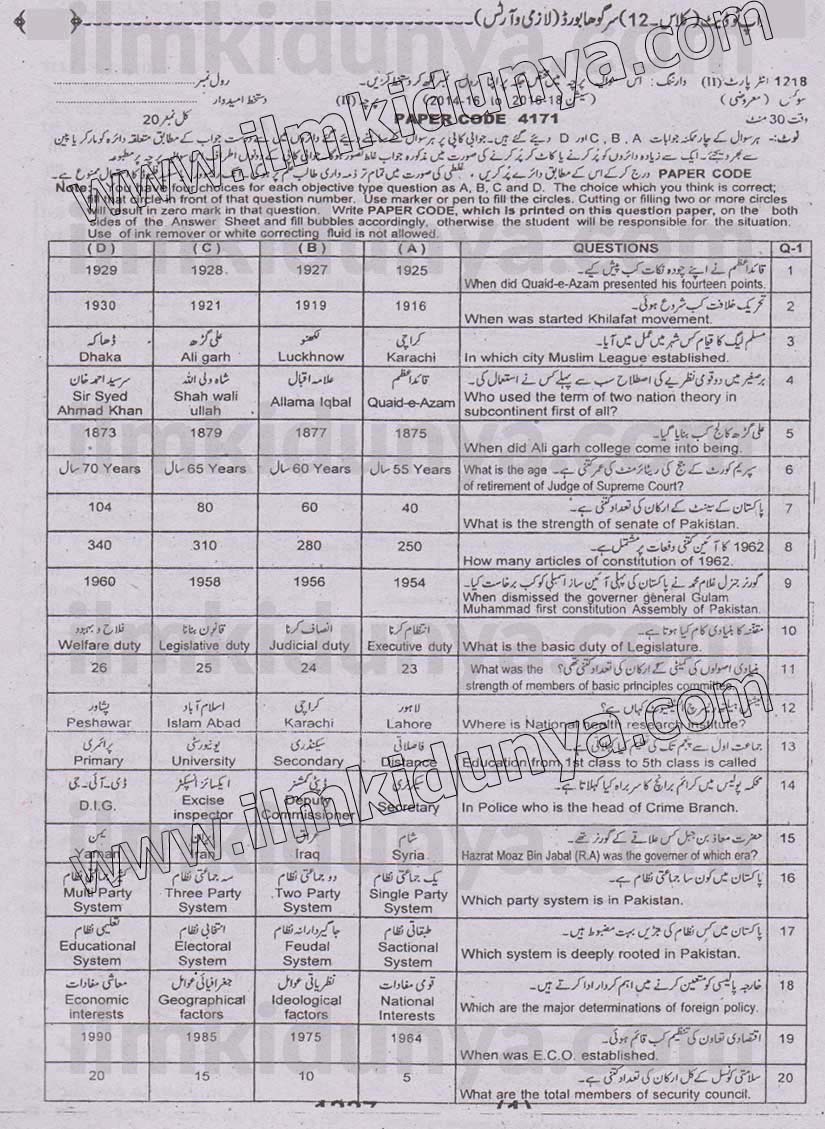 اپ ٹو ڈیٹ (کلاس۔ 12) سرگودھا بورڈ (لازمی و آرٹس)
1218 انٹر پارٹ (II) وارننگ: اس سوالیہ پرچہ میں مختص جگہ پر اپنا رول نمبر لکھ کر دستخط کریں۔ رول نمبر
سوکس (معروضی) (سیشن 2016-18 to 2014-16) پرچہ (II) دستخط امیدوار
وقت 30 منٹ PAPER CODE 4171 کل نمبر 20
نوٹ:۔ ہر سوال کے چار ممکنہ جوابات C، B، A اور D دیئے گئے ہیں۔ جوابی کاپی پر ہر سوال کے سامنے دیئے گئے دائروں میں سے درست جواب کے مطابق متعلقہ دائرہ کو مارکر یا پین
سے بھر دیجئے۔ ایک سے زیادہ دائروں کو پُر کرنے یا کاٹ کر پُر کرنے کی صورت میں مذکورہ جواب غلط تصور ہوگا۔ جوابی کاپی کے دونوں اطراف اس سوالیہ پرچہ پر مطبوعہ
PAPER CODE درج کر کے اس کے مطابق دائرے پُر کریں، غلطی کی صورت میں تمام تر ذمہ داری طالب علم پر ہوگی۔ استعمال ممنوع ہے۔
Note:- You have four choices for each objective type question as A, B, C and D. The choice which you think is correct;
fill that circle in front of that question number. Use marker or pen to fill the circles. Cutting or filling two or more circles
will result in zero mark in that question. Write PAPER CODE, which is printed on this question paper, on the both
sides of the Answer Sheet and fill bubbles accordingly, otherwise the student will be responsible for the situation.
Use of ink remover or white correcting fluid is not allowed.
( D ) ( C ) ( B ) ( A ) QUESTIONS Q-1
1929 1928 1927 1925 قائداعظم نے اپنے چودہ نکات کب پیش کیے۔ 1
When did Quaid-e-Azam presented his fourteen points.
1930 1921 1919 1916 تحریک خلافت کب شروع ہوئی۔ 2
When was started Khilafat movement.
ڈھاکہ علی گڑھ لکھنو کراچی مسلم لیگ کا قیام کس شہر میں عمل میں آیا۔ 3
Dhaka Ali garh Luckhnow Karachi In which city Muslim League established.
سرسید احمد خان شاہ ولی اللہ علامہ اقبال قائداعظم برصغیر میں دو قومی نظریے کی اصطلاح سب سے پہلے کس نے استعمال کی۔ 4
Sir Syed Shah wali Allama Iqbal Quaid-e-Azam Who used the term of two nation theory in
Ahmad Khan ullah subcontinent first of all?
1873 1879 1877 1875 علی گڑھ کالج کب بنایا گیا۔ 5
When did Ali garh college come into being.
70 Years سال 65 Years سال 60 Years سال 55 Years سال What is the age سپریم کورٹ کے جج کی ریٹائرمنٹ کی عمر کتنی ہے۔ 6
of retirement of Judge of Supreme Court?
104 80 60 40 پاکستان کے سینٹ کے ارکان کی تعداد کتنی ہے۔ 7
What is the strength of senate of Pakistan.
340 310 280 250 1962 کا آئین کتنی دفعات پر مشتمل ہے۔ 8
How many articles of constitution of 1962.
1960 1958 1956 1954 گورنر جنرل غلام محمد نے پاکستان کی پہلی آئین ساز اسمبلی کو کب برخاست کیا۔ 9
When dismissed the governer general Gulam
Muhammad first constitution Assembly of Pakistan.
فلاح و بہبود قانون بنانا انصاف کرنا انتظام کرنا مقننہ کا بنیادی کام کیا ہوتا ہے۔ 10
Welfare duty Legislative duty Judicial duty Executive duty What is the basic duty of Legislature.
26 25 24 23 What was the بنیادی اصولوں کی کمیٹی کے ارکان کی تعداد کتنی تھی؟ 11
strength of members of basic principles committee
پشاور اسلام آباد کراچی لاہور نیشنل ہیلتھ ریسرچ انسٹیٹیوٹ کہاں ہے؟ 12
Peshawar Islam Abad Karachi Lahore Where is National health research institute?
پرائمری یونیورسٹی سیکنڈری فاصلاتی جماعت اول سے پنجم تک کی تعلیم کیا کہلاتی ہے۔ 13
Primary University Secondary Distance Education from 1st class to 5th class is called
ڈی۔آئی۔جی ایکسائز انسپکٹر ڈپٹی کمشنر سیکرٹری محکمہ پولیس میں کرائم برانچ کا سربراہ کیا کہلاتا ہے۔ 14
D.I.G. Excise inspector Deputy Commissioner Secretary In Police who is the head of Crime Branch.
یمن ایران عراق شام حضرت معاذ بن جبل کس علاقے کے گورنر تھے۔ 15
Yaman Iran Iraq Syria Hazrat Moaz Bin Jabal (R.A) was the governer of which era?
کثیر جماعتی نظام سہ جماعتی نظام دو جماعتی نظام یک جماعتی نظام پاکستان میں کون سا جماعتی نظام ہے۔ 16
Multi Party Three Party Two Party Single Party Which party system is in Pakistan.
System System System System
تعلیمی نظام انتخابی نظام جاگیردارانہ نظام طبقاتی نظام پاکستان میں کس نظام کی جڑیں بہت مضبوط ہیں۔ 17
Educational Electoral Feudal Sactional Which system is deeply rooted in Pakistan.
System System System System
معاشی مفادات جغرافیائی عوامل نظریاتی عوامل قومی مفادات خارجہ پالیسی کو متعین کرنے میں اہم کردار ادا کرتے ہیں۔ 18
Economic Geographical Ideological National Which are the major determinations of foreign policy.
interests factors factors Interests
1990 1985 1975 1964 اقتصادی تعاون کی تنظیم کب قائم ہوئی۔ 19
When was E.C.O. established.
20 15 10 5 سلامتی کونسل کے کل ارکان کی تعداد کتنی ہے۔ 20
What are the total members of security council.
www.ilmkidunya.com
www.ilmkidunya.com
ilmkidunya.com